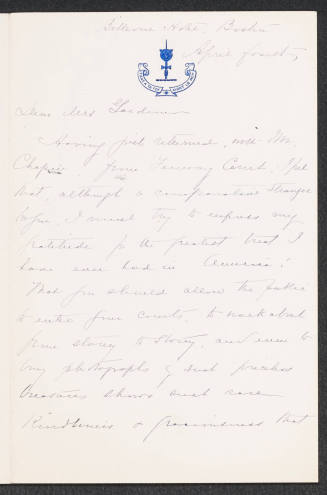 Bellevue Hotel, Boston
April fourth,
Dear Mrs Gardiner
Having just returned, with Mrs.
Chapin, from Fenway Court, I feel
that, although a comparative stranger
to you, I must try to express my
gratitude for the greatest treat I
have ever had in "America"!
That you should allow the public
to enter your courts, to walk about
from storey to storey, and even to
buy photographs of such priceless
treasures shows such rare
Kindliness & graciousness that